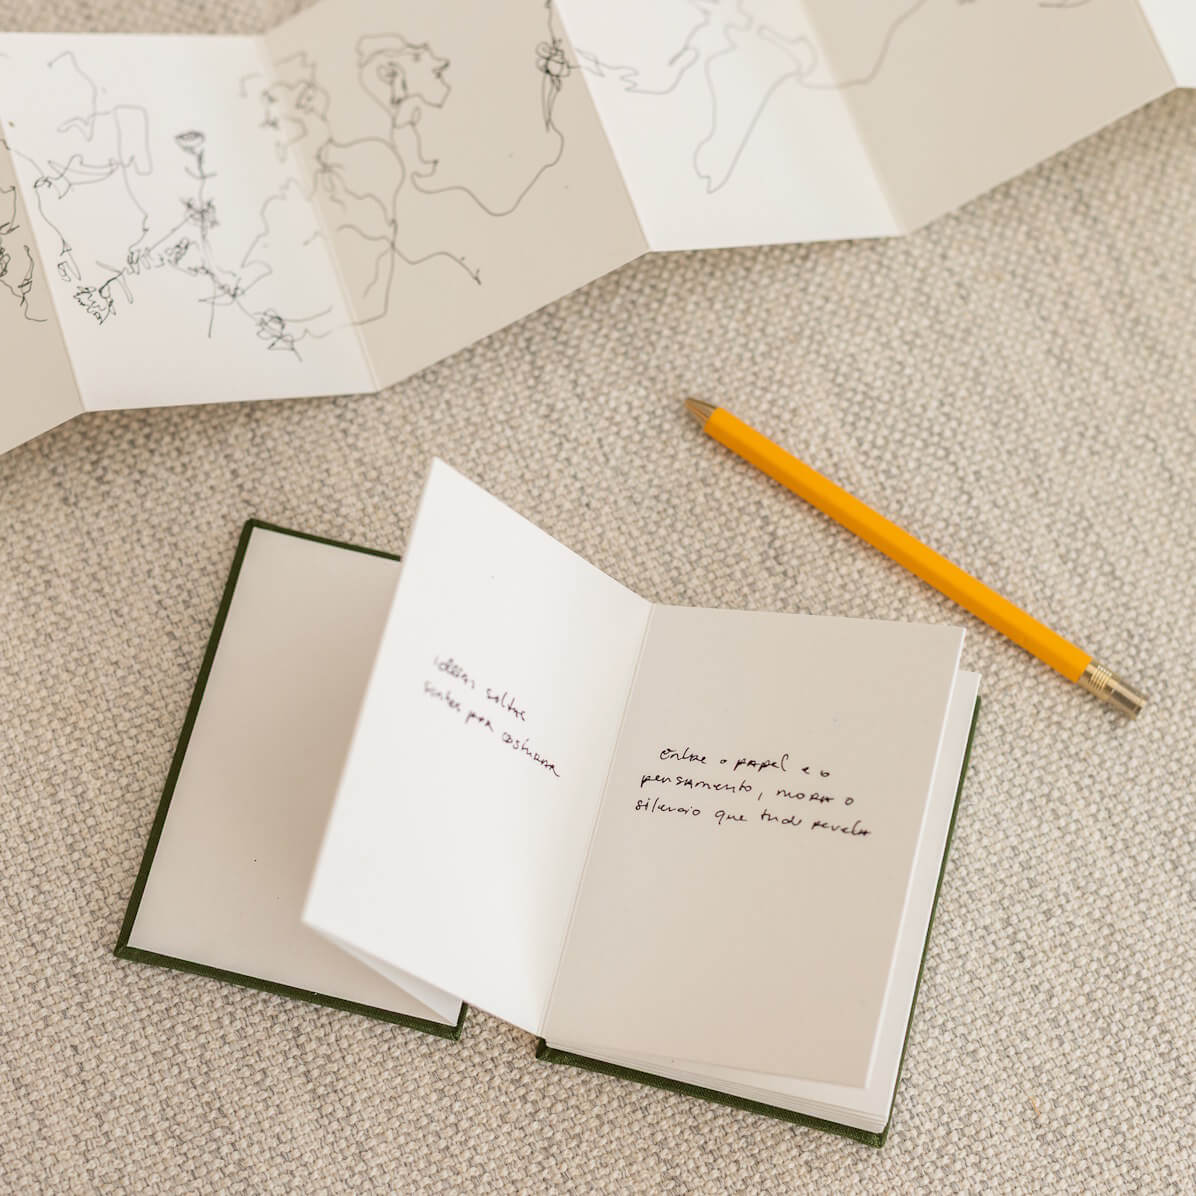 ideias soltas
sinta pra costurar
Entre o papel e o
pensamento, mora o
silencio que tudo revela